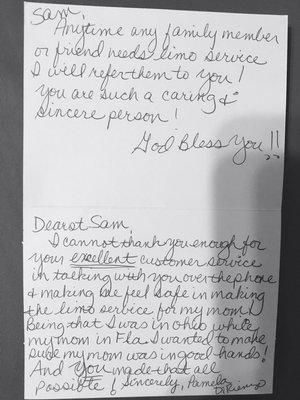 Sam,
Anytime any family member
or friend needs limo service
I will refer them to you!
You are such a caring &
sincere person!
God Bless You!!
Dearest Sam,
I cannot thank you enough for
your excellent customer service
in talking with you over the phone
& making me feel safe in making
the limo service for my mom.
Being that I was in Ohio while
my mom in Fla. I wanted to make
sure my mom was in good hands!
And you made that all
possible! Sincerely, Pamela